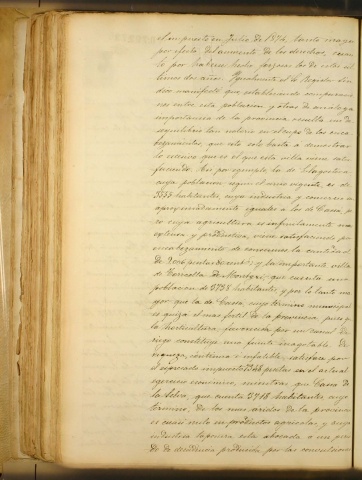 el impuesto en Julio de 1876, tanto mayor
por efecto del aumento de los derechos, como
lo por haberse hecho forzoso los de estos úl
timos dos años. Igualmente el Sr. Regidor
dico manifestó que estableciendo comparacio
nes entre esta población y otras de análoga
importancia de la provincia resulta un de
sequilibrio tan notorio en el cupo de los enca
bezamientos, que ello solo basta a demostrar
lo oneroso que es el que esta villa viene satis
faciendo. Así por ejemplo la de Llagostera
cuya población según el censo vigente, es de
habitantes, cuya industria y comercio es
aproximadamente iguales a los de Cassá, pe
ro cuya agricultura es infinitamente mas
extensa y productiva, viene satisfaciendo por
encabezamiento de consumos la cantidad
de pesetas y la importante villa
de Torroella de Montgrí, que cuenta una
población de 3738 habitantes y por lo tanto ma
yor que la de Cassá, cuyo término municipal
es quizá el mas fértil de la provincia pues
la horticultura, favorecida por un canal de
riego constituye una fuente inagotable de
riqueza, continua e infalible, satisface por
el expresado impuesto pesetas en el actual
ejercicio económico, mientras que Cassá de
la Selva, que cuenta 3718 habitantes, cuyo
término, de los mas áridos de la provincia
es casi nulo en productos agrícolas, y cuya
industria taponera está abocada a un perio
do de decadencia producida por las